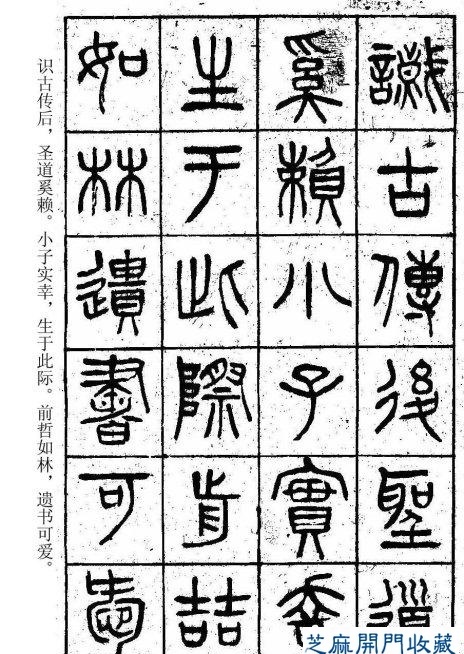 識古傳後聖道
奚賴小子實幸
生于此際前喆
如林遺書可愛
识古传后，圣道奚赖。小子实幸，生于此际。前哲如林，遗书可爱。
芝麻開門收藏